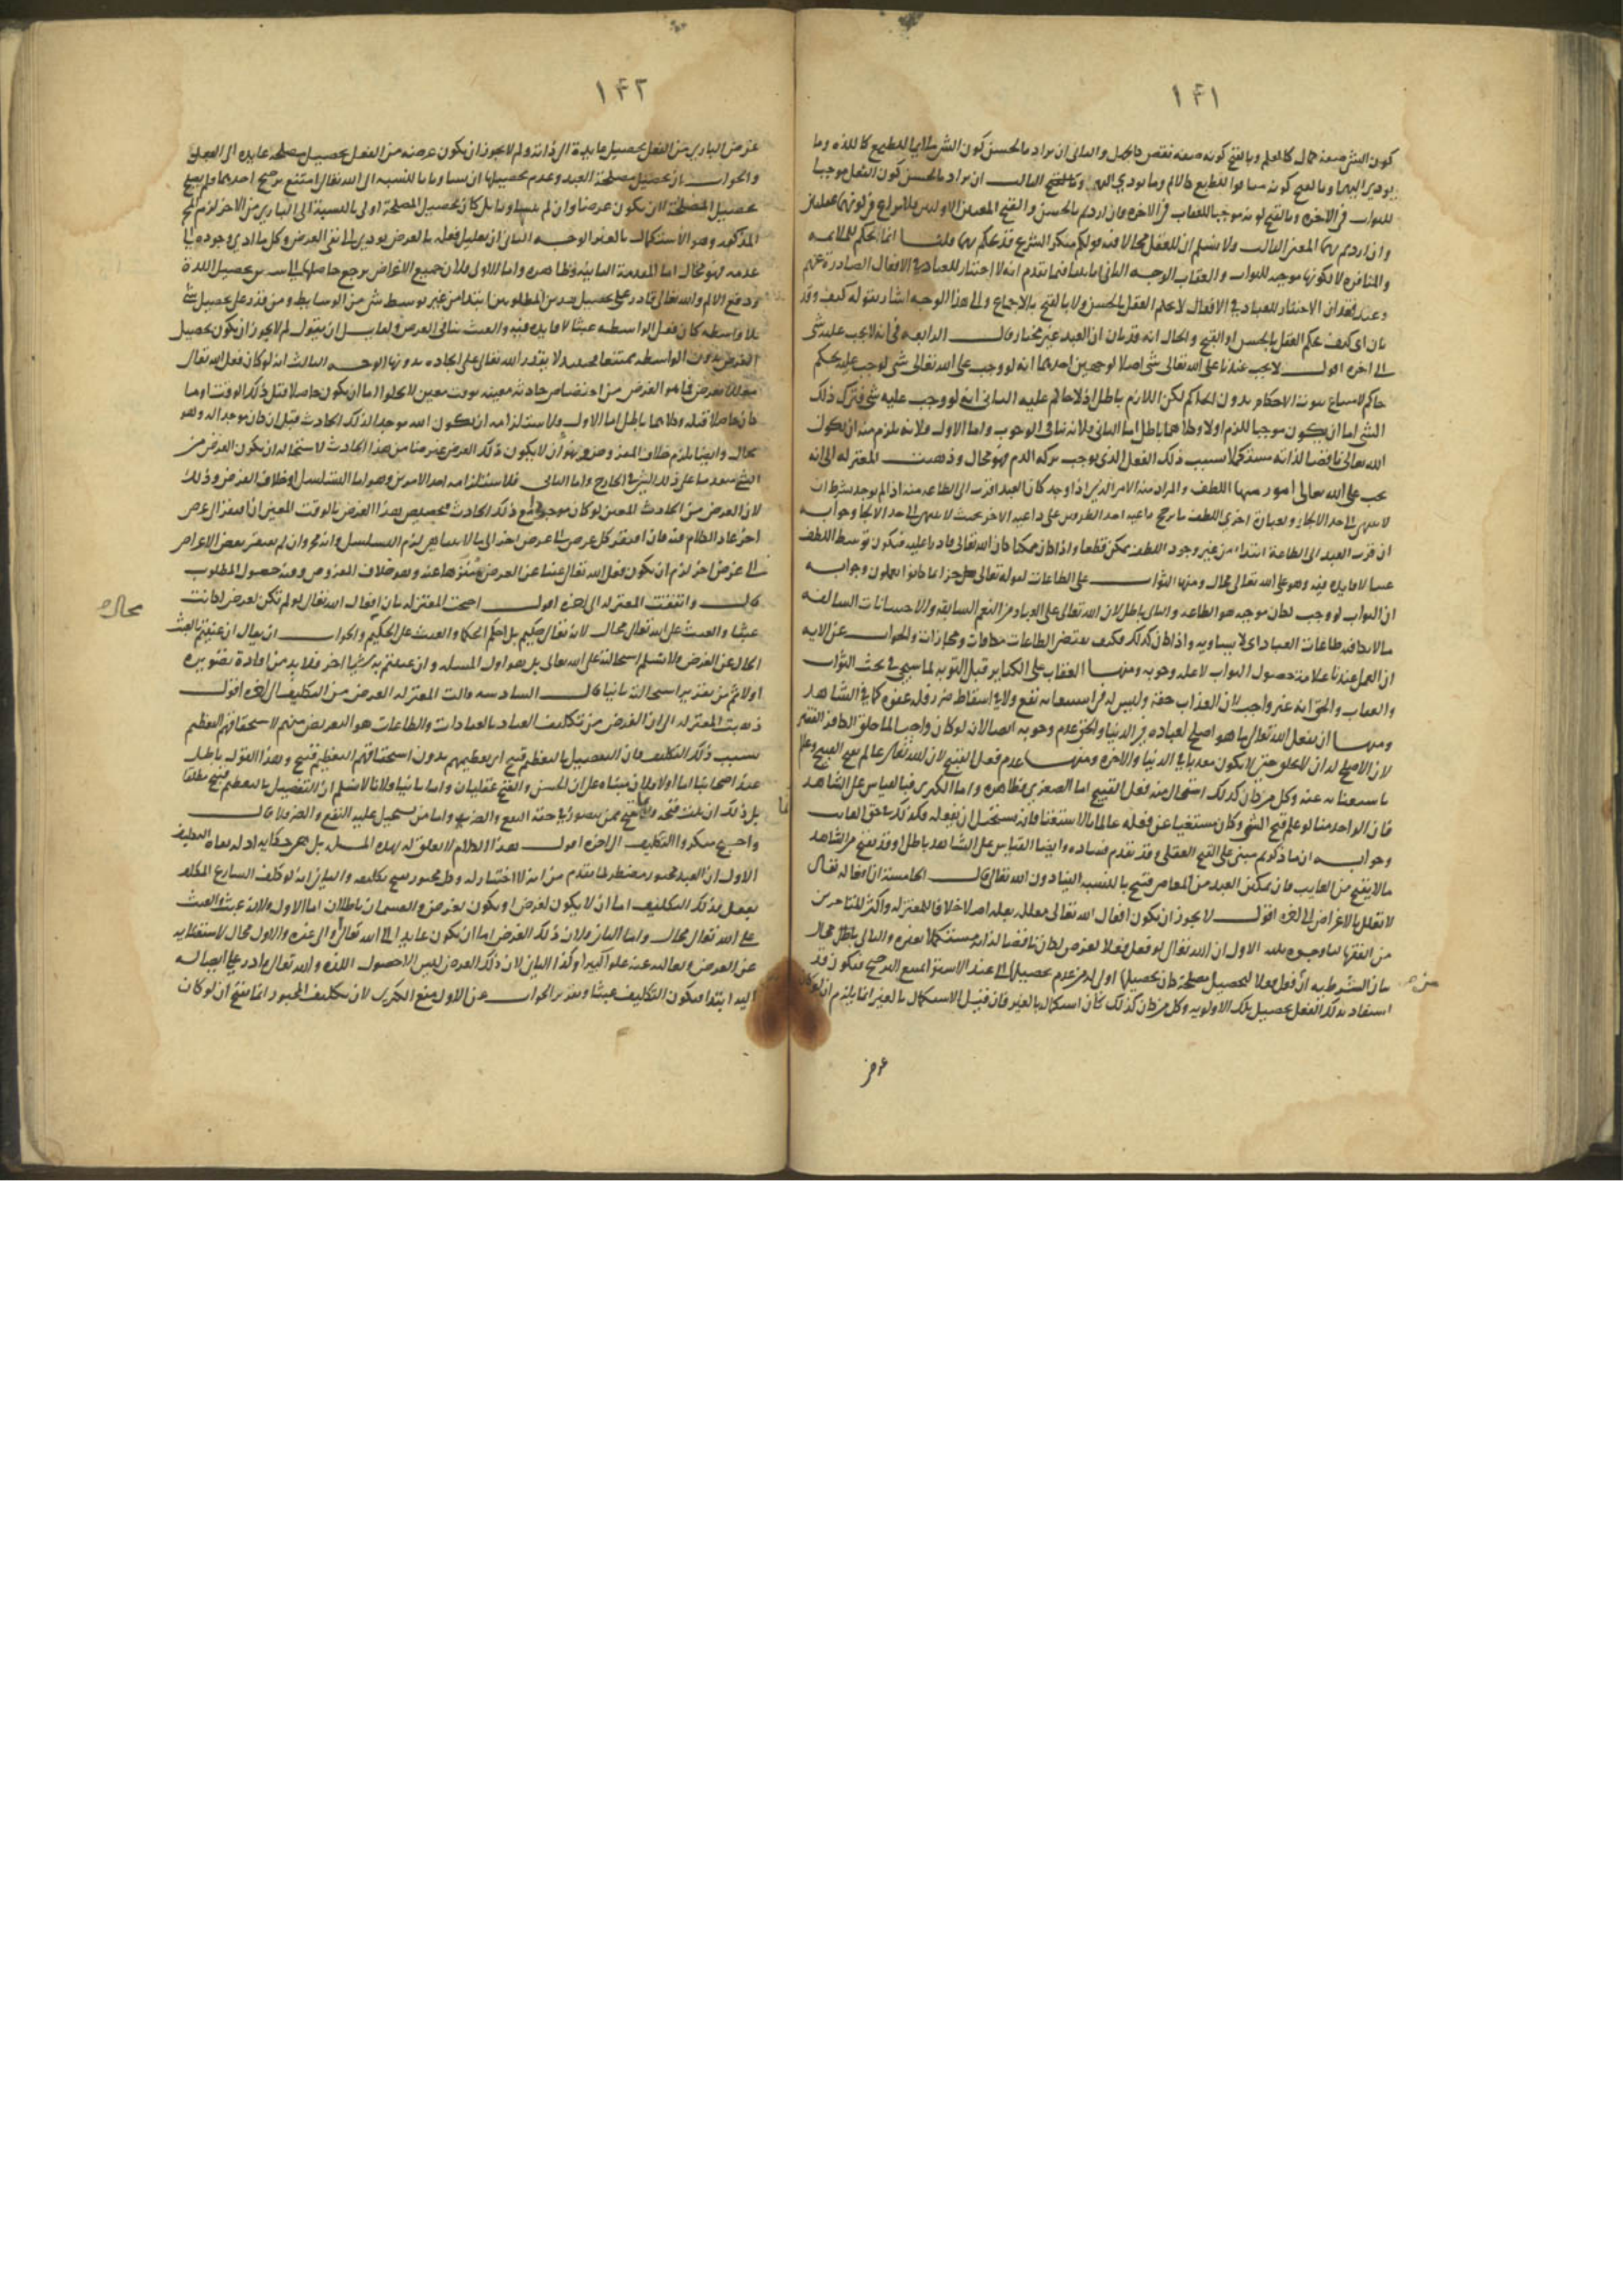 ١٤١
كون الشئ صفة كمال كالعلم وبالقبح كونه صفة نقص كالجهل والثانى ان يراد بالحسن كون الشئ ملايما للطبع كاللذة وما
يودى اليها وبالقبح كونه منافرا للطبع كالالم وما يودى اليه الثالث ان يراد بالحسن كون الفعل موجبا
للثواب فى الاخرة وبالقبح كونه موجبا للعقاب فى الاخرة فان اردتم بالحسن والقبح المعنيين الاولين فلا نزاع فى كونهما عقليين
وان اردتم بهما المعنى الثالث ولا نسلم ان للعقل مجالا فيه قولكم منكر الشرع قد يحكم بهما قلنا انما يحكم للملائمة
والمنافرة لا لكونها موجبة للثواب والعقاب الوجه الثانى فيما تقدم انه لا اختيار للعباد فى الافعال الصادرة عنهم
وعند فقدان الاختيار للعباد فى الافعال لا يحكم العقل بالحسن ولا بالقبح بالاجماع والى هذا الوجه اشار بقوله كيف وقد
بان اى كيف يحكم العقل بالحسن او القبح والحال انه قد بان ان العبد غير مختار قال الرابعة فى انه لا يجب عليه شئ
الى اخره اقول لا يجب عندنا على الله تعالى شئ اصلا لوجهين احدهما انه لو وجب على الله تعالى شئ لوجب عليه بحكم
حاكم لامتناع ثبوت الاحكام بدون الحاكم لكن اللازم باطل اذ لا حاكم عليه الثانى انه لو وجب عليه شئ فبترك ذلك
الشئ اما ان يكون موجبا للذم اولا وكلاهما باطل اما الثانى فلانه ينافى الوجوب واما الاول فلانه يلزم منه ان يكون
الله تعالى ناقصا لذاته مستكملا بسبب ذلك الفعل الذى يوجب تركه الذم فهو محال وذهبت المعتزلة الى انه
يجب على الله تعالى امور منها اللطف والمراد منه الامر الذى اذا وجد كان العبد اقرب الى الطاعة منه اذا لم يوجد بشرط ان
لا ينتهى الى حد الالجاء وبعبارة اخرى اللطف ما يرجح داعية احد الطرفين على داعية الاخر بحيث لا ينتهى الى حد الالجا وجوابه
ان قرب العبد الى الطاعة ابتداء من غير وجود اللطف ممكن قطعا واذا كان ممكنا كان الله تعالى قادرا عليه فيكون توسط اللطف
عبثا لا فايدة فيه وهو على الله تعالى محال ومنها الثواب على الطاعات لقوله تعالى جزاء بما كانوا يعملون وجوابه
ان الثواب لو وجب لكان موجبه هو الطاعة والتالى باطل لان الله تعالى على العباد من النعم السابقة والاحسانات السالفة
ما لا يكافيه طاعات العباد اى لا يساويه واذا كان كذلك فكيف يقتضى الطاعات مكافات ومجازات والجواب عن الاية
ان العمل عندنا علامة حصول الثواب لا علة وجوبه ومنها العقاب على الكباير قبل التوبة لما سيجى فى بحث الثواب
والعقاب والحق انه غير واجب لان العذاب حقه وليس له فى استيفائه نفع ولا فى اسقاطه ضرر فله عفوه كما فى الشاهد
ومنها ان يفعل الله تعالى ما هو اصلح لعباده فى الدنيا والحق عدم وجوبه ايضا لانه لو كان واجبا لما خلق الكافر الفقير
لان الاصلح له ان لا يخلق حتى لا يكون معذبا فى الدنيا والاخرة ومنها عدم فعل القبيح لان الله تعالى عالم بقبح القبيح وعالم
باستغنائه عنه وكل من كان كذلك استحال منه فعل القبيح اما الصغرى فظاهرة واما الكبرى فبالقياس على الشاهد
فان الواحد منا لو علم قبح الشئ وكان مستغنيا عن فعله عالما بالاستغنا فانه يستحيل ان يفعله فكذلك فى حق الغايب
وجوابه ان ما ذكرتم مبنى على القبح العقلى وقد تقدم فساده وايضا القياس على الشاهد باطل اذ قد يقبح من الشاهد
ما لا يقبح من الغايب فان تمكين العبد من المعاصى قبيح بالنسبة الينا دون الله تعالى قال الخامسة ان افعاله تعالى
لا تعلل بالاغراض الى اخره اقول لا يجوز ان يكون افعال الله تعالى معللة بعلة اصلا خلافا للمعتزلة واكثر المتاخرين
من الفقهاء لنا وجوه ثلثة الاول ان الله تعالى لو فعل فعلا لغرض لكان ناقصا لذاته مستكملا بغيره والتالى باطل محال
بيان الشرطية انه لو فعل فعلا لتحصيل مصلحة كان تحصيلها اولى له من عدم تحصيلها اذ عند الاستوا يمتنع الترجيح فيكون قد
استفاد بذلك الفعل تحصيل تلك الاولوية وكل من كان كذلك كان استكماله بالغير فان قيل الاستكمال بالغير انما يلزم ان لو كان
غرض
١٤٢
غرض البارى من الفعل تحصيل فايدة الى ذاته ولم لا يجوز ان يكون غرضه من الفعل تحصيل مصلحة عايدة الى العبد
والجواب ان تحصيل مصلحة العبد وعدم تحصيلها ان تساويا بالنسبة الى الله تعالى امتنع ترجيح احدهما ولم يصلح
تحصيل المصلحة لان يكون غرضا وان لم يتساويا بل كان تحصيل المصلحة اولى بالنسبة الى البارى من الاخر لزم المح
المذكور وهو الاستكمال بالغير الوجه الثانى ان تعليل فعله بالغرض يودى الى نفى الغرض وكل ما ادى وجوده الى
عدمه فهو محال اما المقدمة الثانية فظاهرة واما الاولى فلان جميع الاغراض يرجع حاصلها الى تحصيل اللذة
ودفع الالم والله تعالى قادر على تحصيل هذين المطلوبين ابتدا من غير توسيط شئ من الوسايط ومن قدر على تحصيل شئ
بلا واسطة كان فعل الواسطة عبثا لا فايدة فيه والعبث ينافى الغرض ولقايل ان يقول لم لا يجوز ان يكون تحصيل
الغرض بدون الواسطة ممتنعا فحينئذ لا يقدر الله تعالى على ايجاده بدونها الوجه الثالث انه لو كان فعل الله تعالى
معللا بغرض فما هو الغرض من اختصاص حادثة معينة بوقت معين لا يخلو اما ان يكون حاصلا قبل ذلك الوقت او ما
كان حاصلا قبله وكلاهما باطل اما الاول فلاستلزامه ان يكون الله موجدا لذلك الحادث قبل ان كان موجدا له وهو
محال وايضا يلزم خلاف المفروض وهو ان لا يكون ذلك الغرض غرضا من هذا الحادث لاستحالة ان يكون الغرض من
الشئ متقدما على ذلك الشئ فى الخارج واما الثانى فلاستلزامه احد الامرين وهو اما التسلسل او خلاف الفرض وذلك
لان الغرض من الحادث المعين لو كان موجودا مع ذلك الحادث فتخصيص هذا الغرض بالوقت المعين ان افتقر الى غرض
اخر عاد الكلام فيه فان افتقر كل غرض الى غرض اخر الى ما لا يتناهى لزم التسلسل وانه مح وان لم يفتقر بعض الاغراض
الى غرض اخر لزم ان يكون فعل الله تعالى غنيا عن الغرض منزها عنه وهو خلاف المفروض وفيه حصول المطلوب
قال واتفقت المعتزلة الى اخره اقول احتجت المعتزلة بان افعال الله تعالى لو لم تكن لغرض لكانت
عبثا والعبث على الله تعالى محال لانه تعالى حكيم بل احكم الحكما والعبث على الحكيم والجواب ان يقال ان عنيتم بالعبث
محال
الخالى عن الغرض ولا نسلم استحالته على الله تعالى بل هو اول المسئلة وان عنيتم به شيئا اخر فلا بد من افادة تصويره
اولا ثم من تقرير استحالته ثانيا قال السادسة قالت المعتزلة الغرض من التكليف الى اخره اقول
ذهبت المعتزلة الى ان الغرض من تكليف العباد بالعبادات والطاعات هو التعريض منهم لاستحقاقهم التعظيم
بسبب ذلك التكليف فان التفضيل بالتعظيم قبيح اى تعظيمهم بدون استحقاقهم التعظيم قبيح وهذا القول باطل
عند اصحابنا اما اولا فلان مبناه على ان الحسن والقبح عقليان واما ثانيا فلانا لا نسلم ان التفضيل بالتعظيم قبيح مطلقا
بل ذلك ان ثبت قبحه فانما يقبح ممن يتصور فى حقه النفع والضرر واما من يستحيل عليه النفع والضر فلا قال
واحتج منكروا التكليف الى اخره اقول هذا الكلام لا تعلق له بهذه المسئلة بل هى حكاية ادلة نفاة التكليف
الاول ان العبد مجبور مضطر لما تقدم من انه لا اختيار له وكل مجبور يقبح تكليفه والثانى انه لو كلف الشارع المكلف
بفعل فذلك التكليف اما ان لا يكون لغرض او يكون لغرض والقسمان باطلان اما الاول فلانه عبث والعبث
على الله تعالى محال واما الثانى فلان ذلك الغرض اما ان يكون عايدا الى الله تعالى او الى غيره والاول محال لاستغنائه
عن الغرض وتعاليه عنه علوا كبيرا وكذا الثانى لان ذلك الغرض ليس الا حصول اللذة والله تعالى قادر على ايصاله
اليه ابتدا فيكون التكليف عبثا وتقرير الجواب عن الاول منع الكبرى لان تكليف المجبور انما يقبح ان لو كان